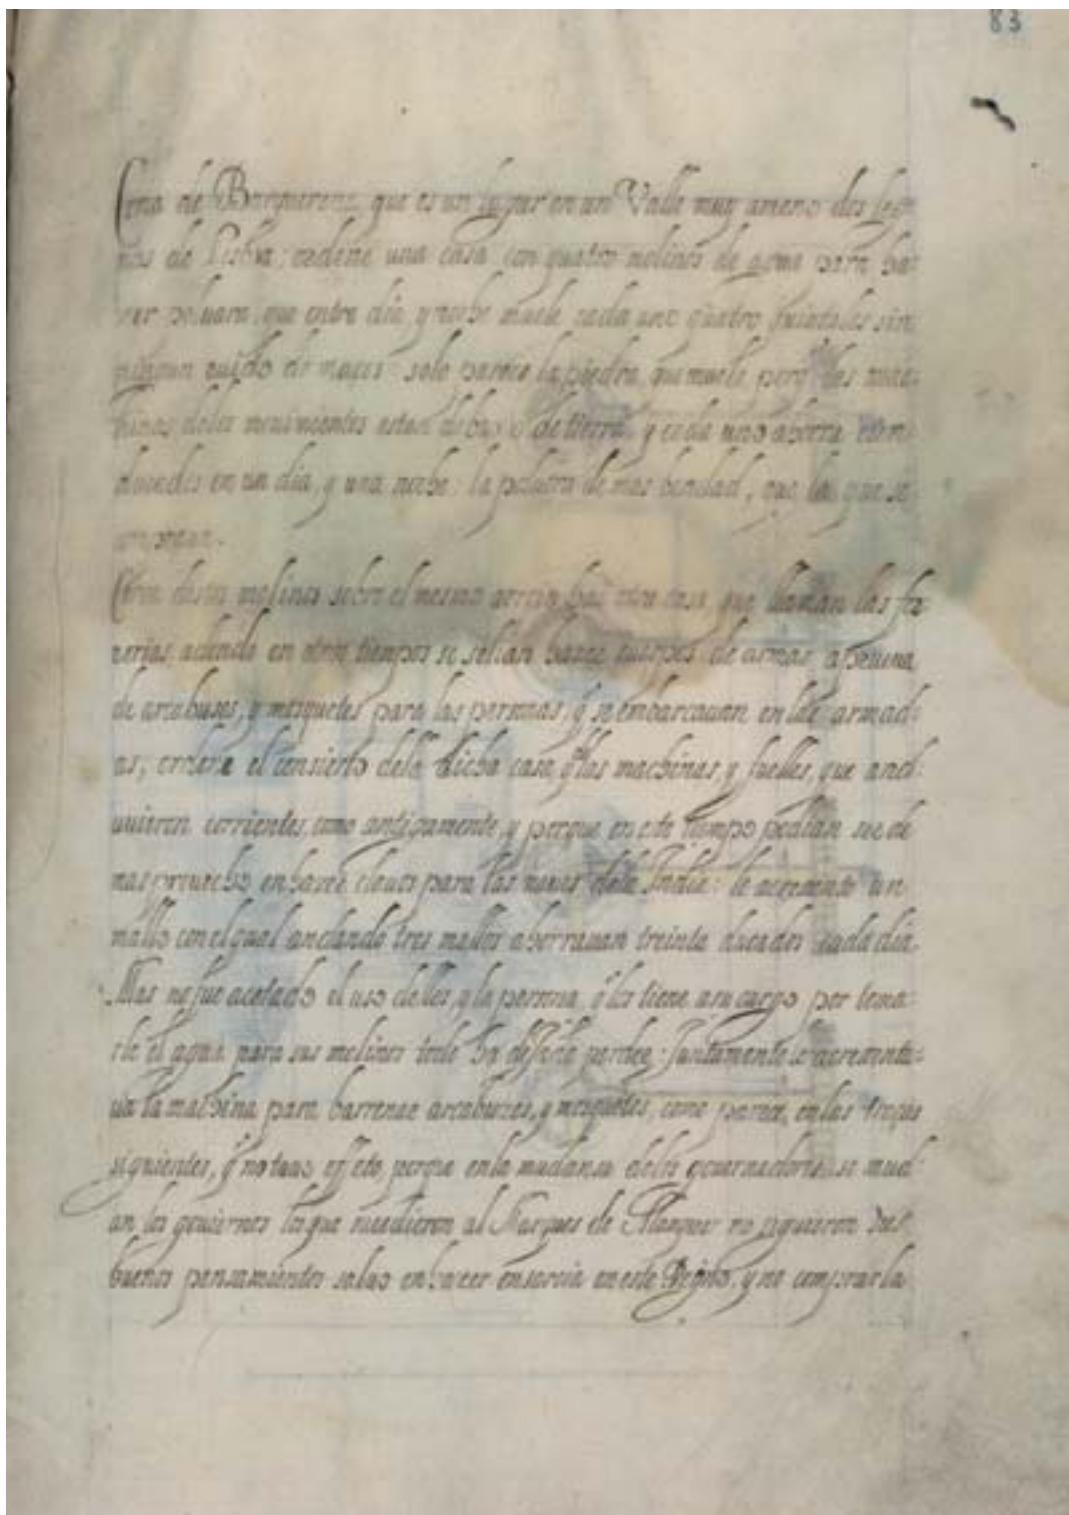 83
de Barquerena, que es un lugar en un Valle muy ameno dos leg
uas de Lisboa; ordene una casa con quatro molinos de agua para ha
zer poluora, que entre dia, y noche muele cada uno quatro quintales sin
ningun ruido de maços: solo parece la piedra, que muele, pero las mac
hinas de los mouimientos estan debaxo de tierra, y cada uno ahorra cien
ducados en un dia, y una noche: la poluora de mas bondad, que la que se

Cerca destos molinos sobre el mesmo arroyo hai otra casa, que llaman las fe
rerias, adonde en otros tiempos se solian hazer cuerpos de armas a prueua
de arcabuses, y mosquetes para las personas, q̃ se embarcauan en las armad
as; ordene el consierto dela dicha casa, q̃ las machinas, y fuelles, que and
uuieron corrientes, como antigamente, y porque en este tiempo podian ser de
mas prouecho en hazer clauos para las naues dela India: le acremento un
mallo con el qual andando tres mallos ahorrauan treinta ducados cada dia.
Mas no fue acetado el uso delles, y la persona, q̃ los tiene asu cargo por toma
rle el agua para sus molinos todo ha perder: Juntamente se acrementa
ua la machina para barrenar arcabuzes, y mosquetes, como parece, en las traças
siguientes, q̃ no tuuo effeto, porque en la mudansa delos gouernadores se mud
an los gouiernos los que sucedieron al Marques de Alanquer no siguieron sus
buenos pensamientos saluo en hacer enxarcia en este Reyno, y no comprarla